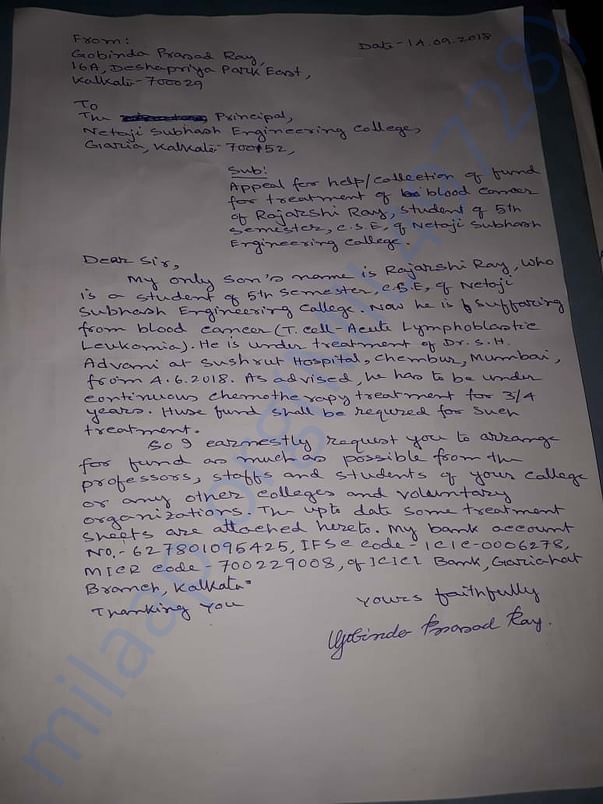 From:
Gobinda Prasad Ray,
16A, Deshapriya Park East,
Kolkata-700029
Date-14.09.2018
To
The Principal,
Netaji Subhash Engineering College,
Garia, Kolkata-700152,
Sub:
Appeal for help/collection of fund
for treatment of blood cancer
of Rajarshi Ray, student of 5th
semester, C.S.E, of Netaji Subhash
Engineering College.
Dear Sir,
My only son's name is Rajarshi Ray, who
is a student of 5th Semester, C.S.E, of Netaji
Subhash Engineering College. Now he is suffaring
from blood cancer (T. cell-Acute Lymphoblastic
Leukomia). He is under treatment of Dr. S.H.
Advani at Sushrut Hospital, Chembur, Mumbai,
from 4.6.2018. As advised, he has to be under
continuous chemotherapy treatment for 3/4
years. Huse fund shall be requred for such
treatment.
So I earnestly request you to arrange
for fund as much as possible from the
professors, staffs and students of your college
or any other colleges and voluntary
organizations. The upto date some treatment
sheets are attached hereto. My bank account
No.- 627801095425, IFSC Code-ICIC-0006278,
MICR code-700229008, of ICICI Bank, Gariahat
Branch, Kolkata"
Thanking you
Yours faithfully
Gobinda Prasad Ray.